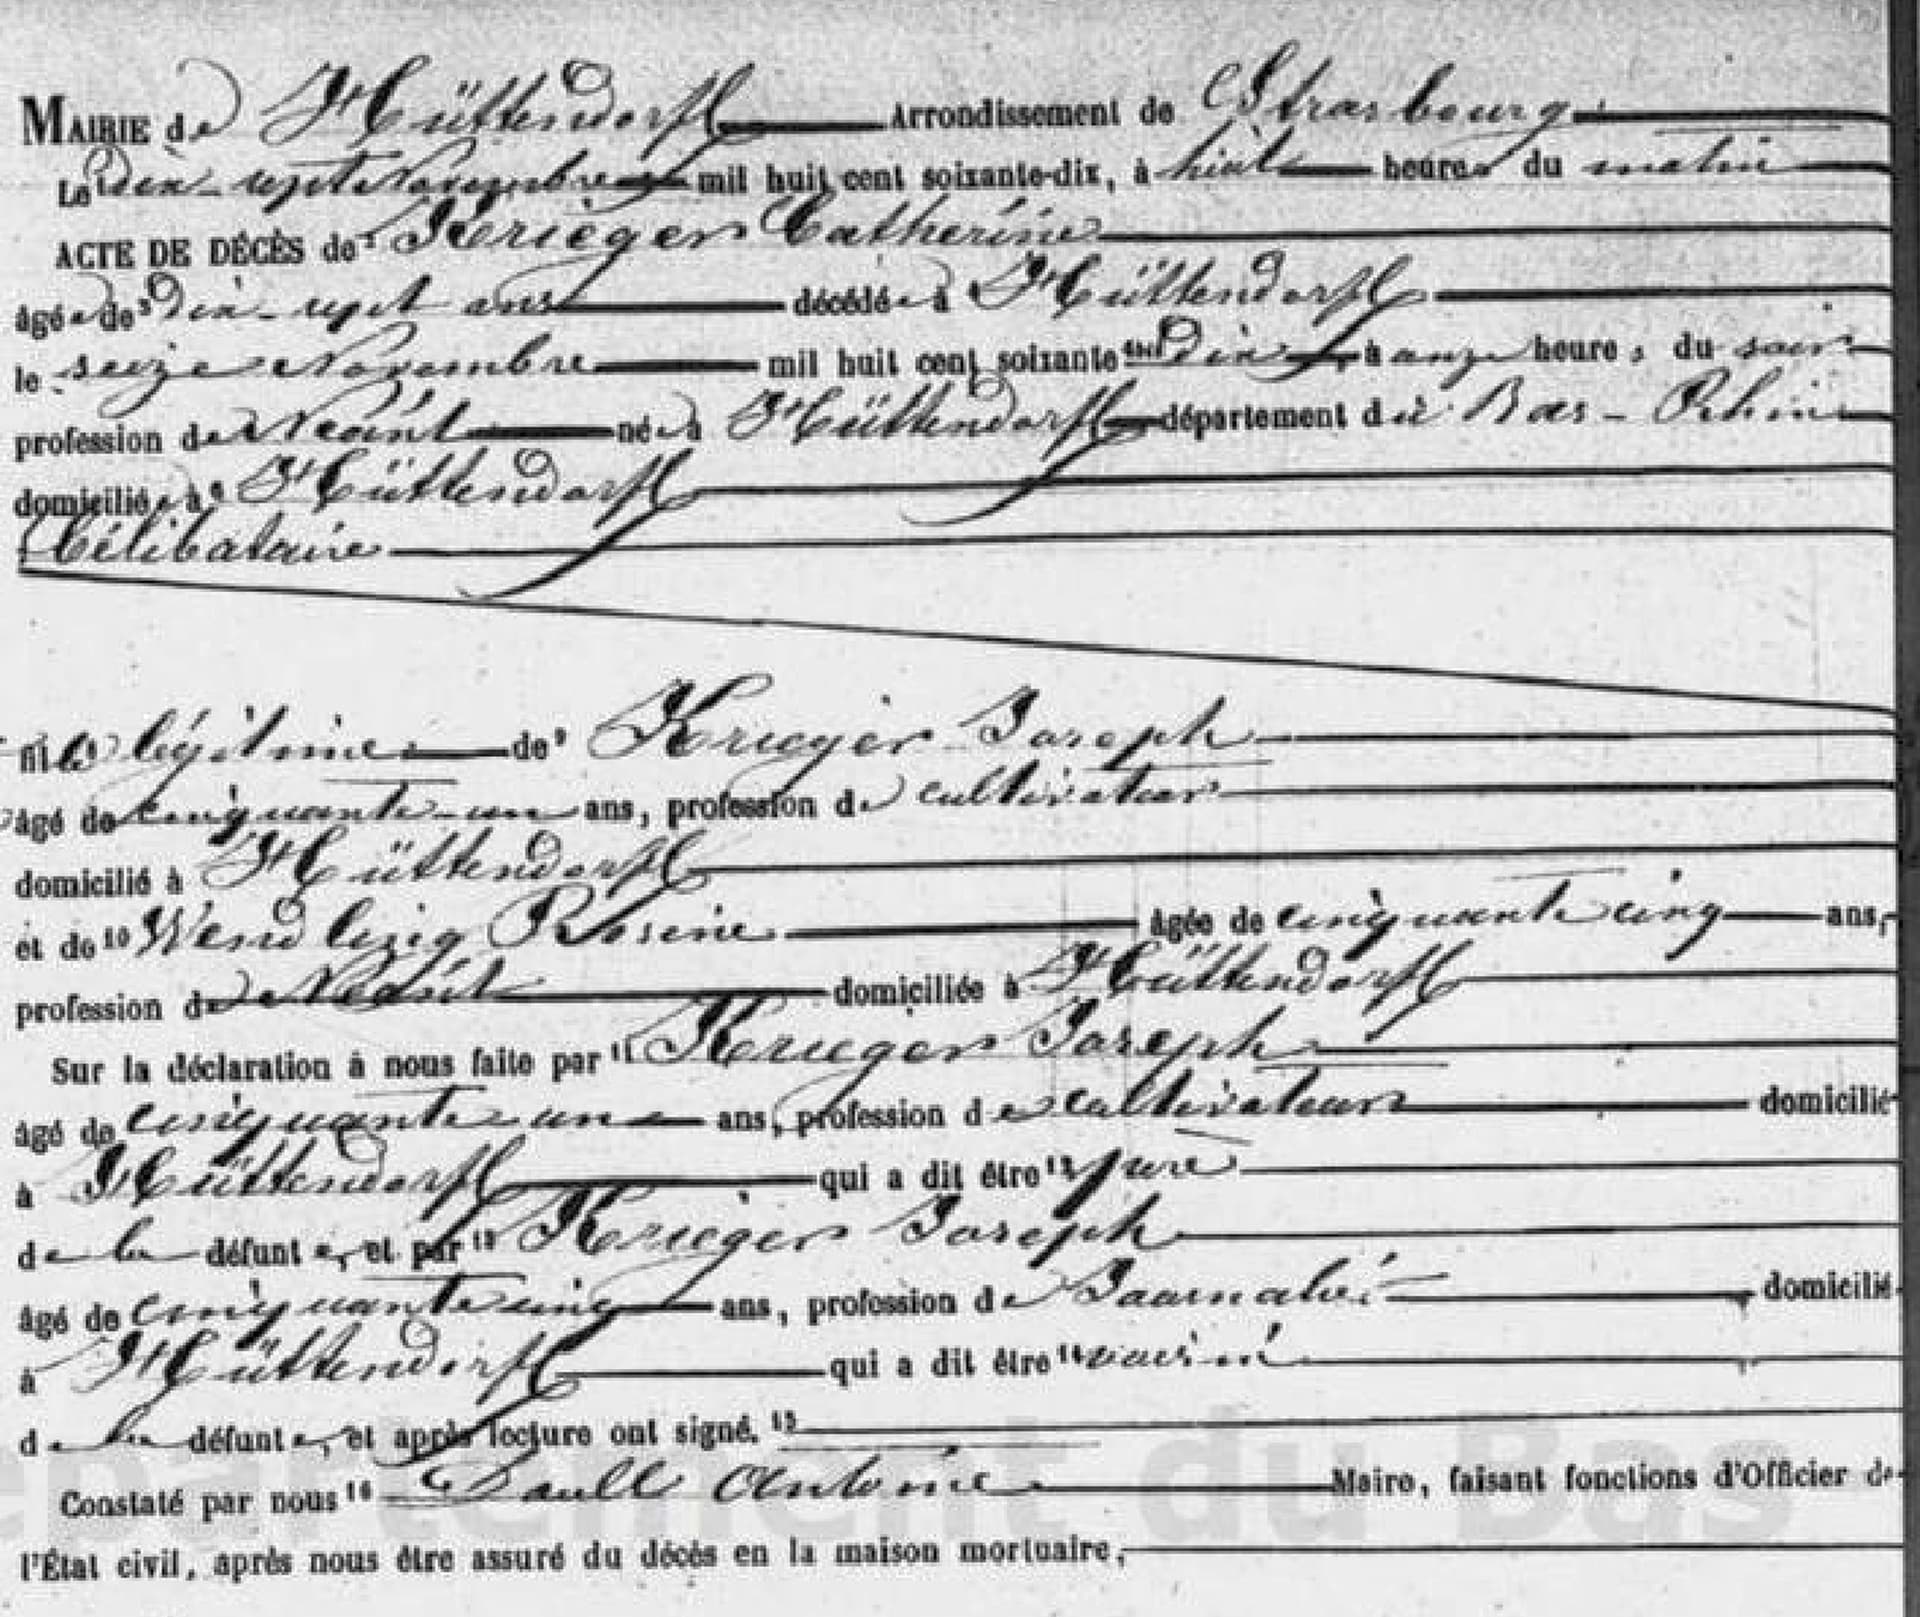 MAIRIE de Hüttendorf Arrondissement de Strasbourg
Le dix-sept Novembre mil huit cent soixante-dix, à huit heures du matin
ACTE DE DÉCÈS de Krieger Catherine
âgée de 3 dix-sept ans décédée à Hüttendorf
le seize Novembre mil huit cent soixante dix, à onze heures du soir
profession de Néant née à Hüttendorf département du Bas-Rhin
domiciliée à Hüttendorf
Célibataire
fille légitime de 9 Krieger Joseph
âgé de cinquante-un ans, profession de cultivateur
domicilié à Hüttendorf
et de 10 Wendling Rosine âgée de cinquante cinq ans,
profession de Néant domiciliée à Hüttendorf
Sur la déclaration à nous faite par 11 Krieger Joseph
âgé de cinquante un ans, profession de cultivateur domicilié
à Hüttendorf qui a dit être 12 père
de la défunte, et par 13 Krieger Joseph
âgé de cinquante cinq ans, profession de Journalier domicilié
à Hüttendorf qui a dit être 14 voisin
de la défunte, et après lecture ont signé. 15
Constaté par nous 16 Daull Antoine Maire, faisant fonctions d'Officier de
l'État civil, après nous être assuré du décès en la maison mortuaire,
partement du Bas